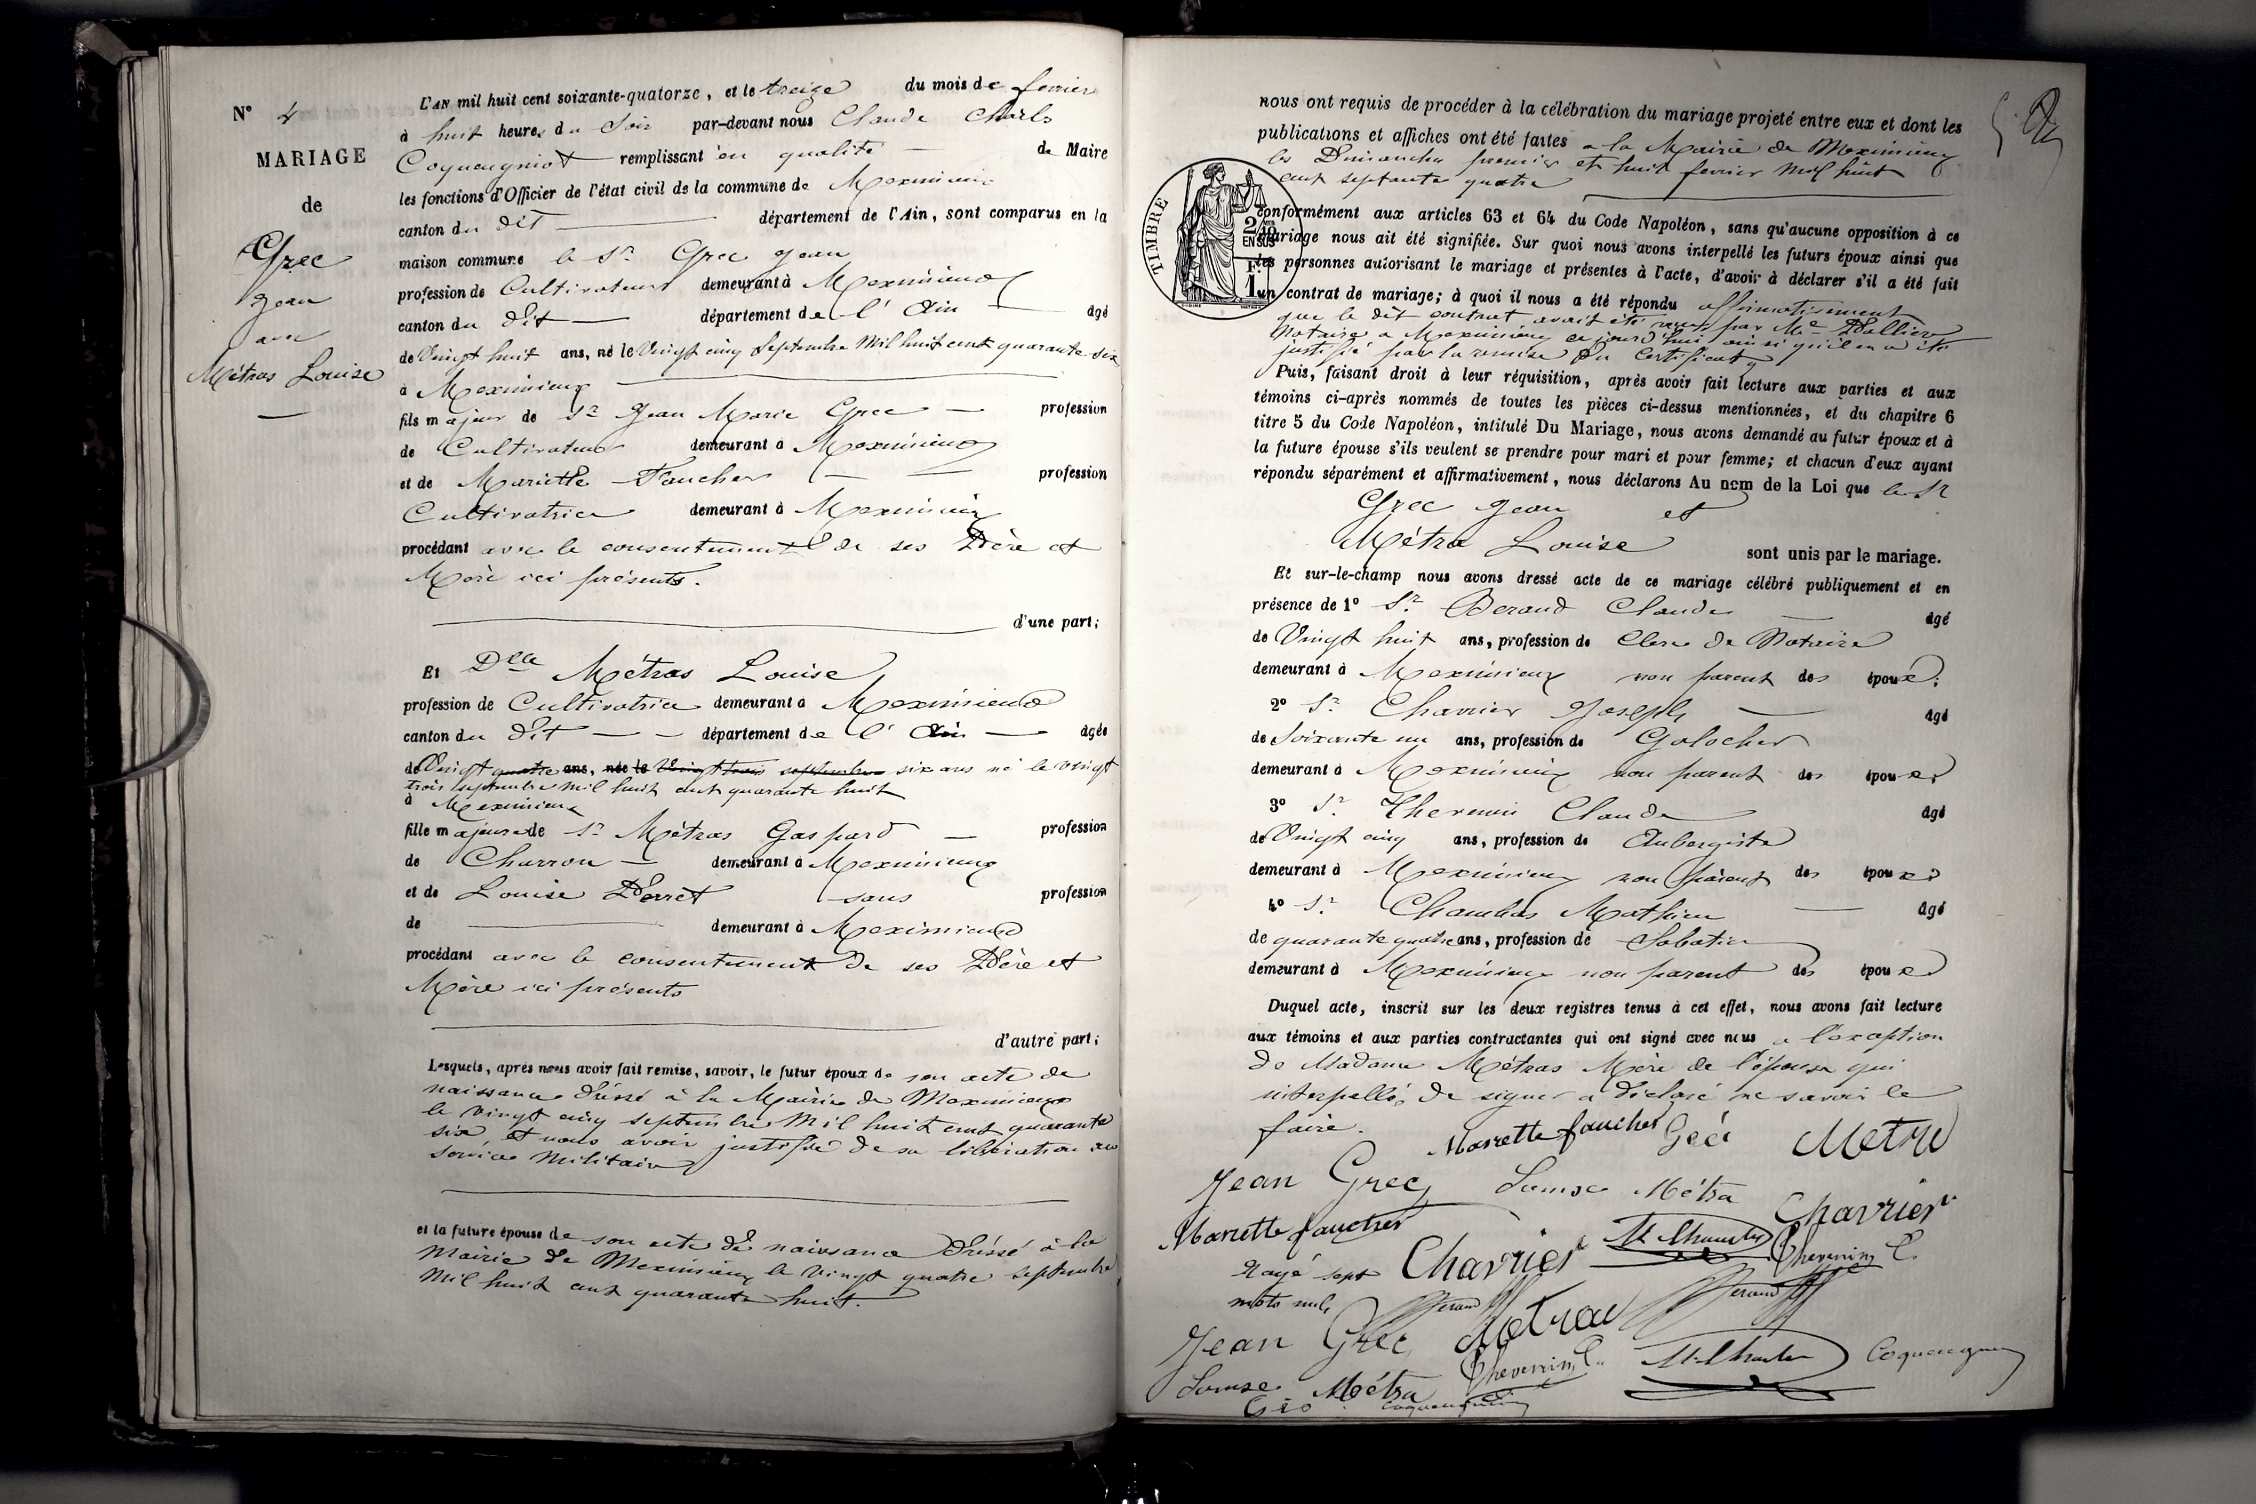 N° 4
MARIAGE
de
Grec
Jean
avec
Métras Louise
L'AN mil huit cent soixante-quatorze, et le treize du mois de fevrier
à huit heures du Soir par-devant nous Claude Charles
Coqueugniot remplissant en qualité de Maire
les fonctions d'Officier de l'état civil de la commune de Meximieux
canton du dit département de l'Ain, sont comparus en la
maison commune le Sr Grec Jean
profession de Cultivateur demeurant à Meximieux
canton du dit département de l'Ain agé
de Vingt huit ans, né le Vingt cinq Septembre Mil huit cent quarante six
à Meximieux
fils majeur de Sr Jean Marie Grec profession
de Cultivateur demeurant à Meximieux
et de Mariette Faucher profession
Cultivatrice demeurant à Meximieux
procédant avec le consentement de ses Père et
Mère ici présents.
d'une part;
Et Dlle Métras Louise
profession de Cultivatrice demeurant à Meximieux
canton du dit département de l'Ain agée
de Vingt quatre ans, née le Vingt trois septembre six ans né le vingt
trois septembre mil huit cent quarante huit
à Meximieux
fille majeure de Sr Métras Gaspard profession
de Charron demeurant à Meximieux
et de Louise Perret sans profession
de demeurant à Meximieux
procédant avec le consentement de ses Père et
Mère ici présents
d'autre part;
Lesquels, après nous avoir fait remise, savoir, le futur époux de son acte de
naissance dréssé à la Mairie de Meximieux
le vingt cinq septembre Mil huit cent quarante
six, et nous avoir justifié de sa libération du
service Militaire
et la future épouse de son acte de naissance dréssé à la
Mairie de Meximieux le vingt quatre septembre
Mil huit cent quarante huit.
nous ont requis de procéder à la célébration du mariage projeté entre eux et dont les
publications et affiches ont été faites a la Mairie de Meximieux
les Dimanches premier et huit fevrier Mil huit
cent septante quatre
TIMBRE
2/10 EN SUS
1 F.
conformément aux articles 63 et 64 du Code Napoléon, sans qu'aucune opposition à ce
mariage nous ait été signifiée. Sur quoi nous avons interpellé les futurs époux ainsi que
les personnes autorisant le mariage et présentes à l'acte, d'avoir à déclarer s'il a été fait
un contrat de mariage; à quoi il nous a été répondu affirmativement
que le dit contrat avait été reçu par Me
Notaire a Meximieux ce jourd'hui ainsi qu'il en a été
justifié par la remise du Certificat
Puis, faisant droit à leur réquisition, après avoir fait lecture aux parties et aux
témoins ci-après nommés de toutes les pièces ci-dessus mentionnées, et du chapitre 6
titre 5 du Code Napoléon, intitulé Du Mariage, nous avons demandé au futur époux et à
la future épouse s'ils veulent se prendre pour mari et pour femme; et chacun d'eux ayant
répondu séparément et affirmativement, nous déclarons Au nom de la Loi que le Sr
Grec Jean et
Métra Louise sont unis par le mariage.
Et sur-le-champ nous avons dressé acte de ce mariage célébré publiquement et en
présence de 1° Sr Beraud Claude agé
de Vingt huit ans, profession de Clerc de Notaire
demeurant à Meximieux non parent des époux;
2° Sr Chavrier Joseph agé
de Soixante un ans, profession de Galocher
demeurant à Meximieux non parent des époux
3° Sr Thevenin Claude agé
de Vingt cinq ans, profession de Aubergiste
demeurant à Meximieux non parent des époux
4° Sr Mathieu agé
de quarante quatre ans, profession de Sabotier
demeurant à Meximieux non parent des époux
Duquel acte, inscrit sur les deux registres tenus à cet effet, nous avons fait lecture
aux témoins et aux parties contractantes qui ont signé avec nous a l'exception
de Madame Métras Mère de l'épouse qui
interpellée de signer a déclaré ne savoir le
faire. Mariette faucher Métra
Jean Grec Louise Métra
Mariette faucher Chavrier Chavrier
Rayé sept Thevenin C.
mots nuls Beraud Beraud
Jean Grec Métra
Louise Métra Thevenin C.